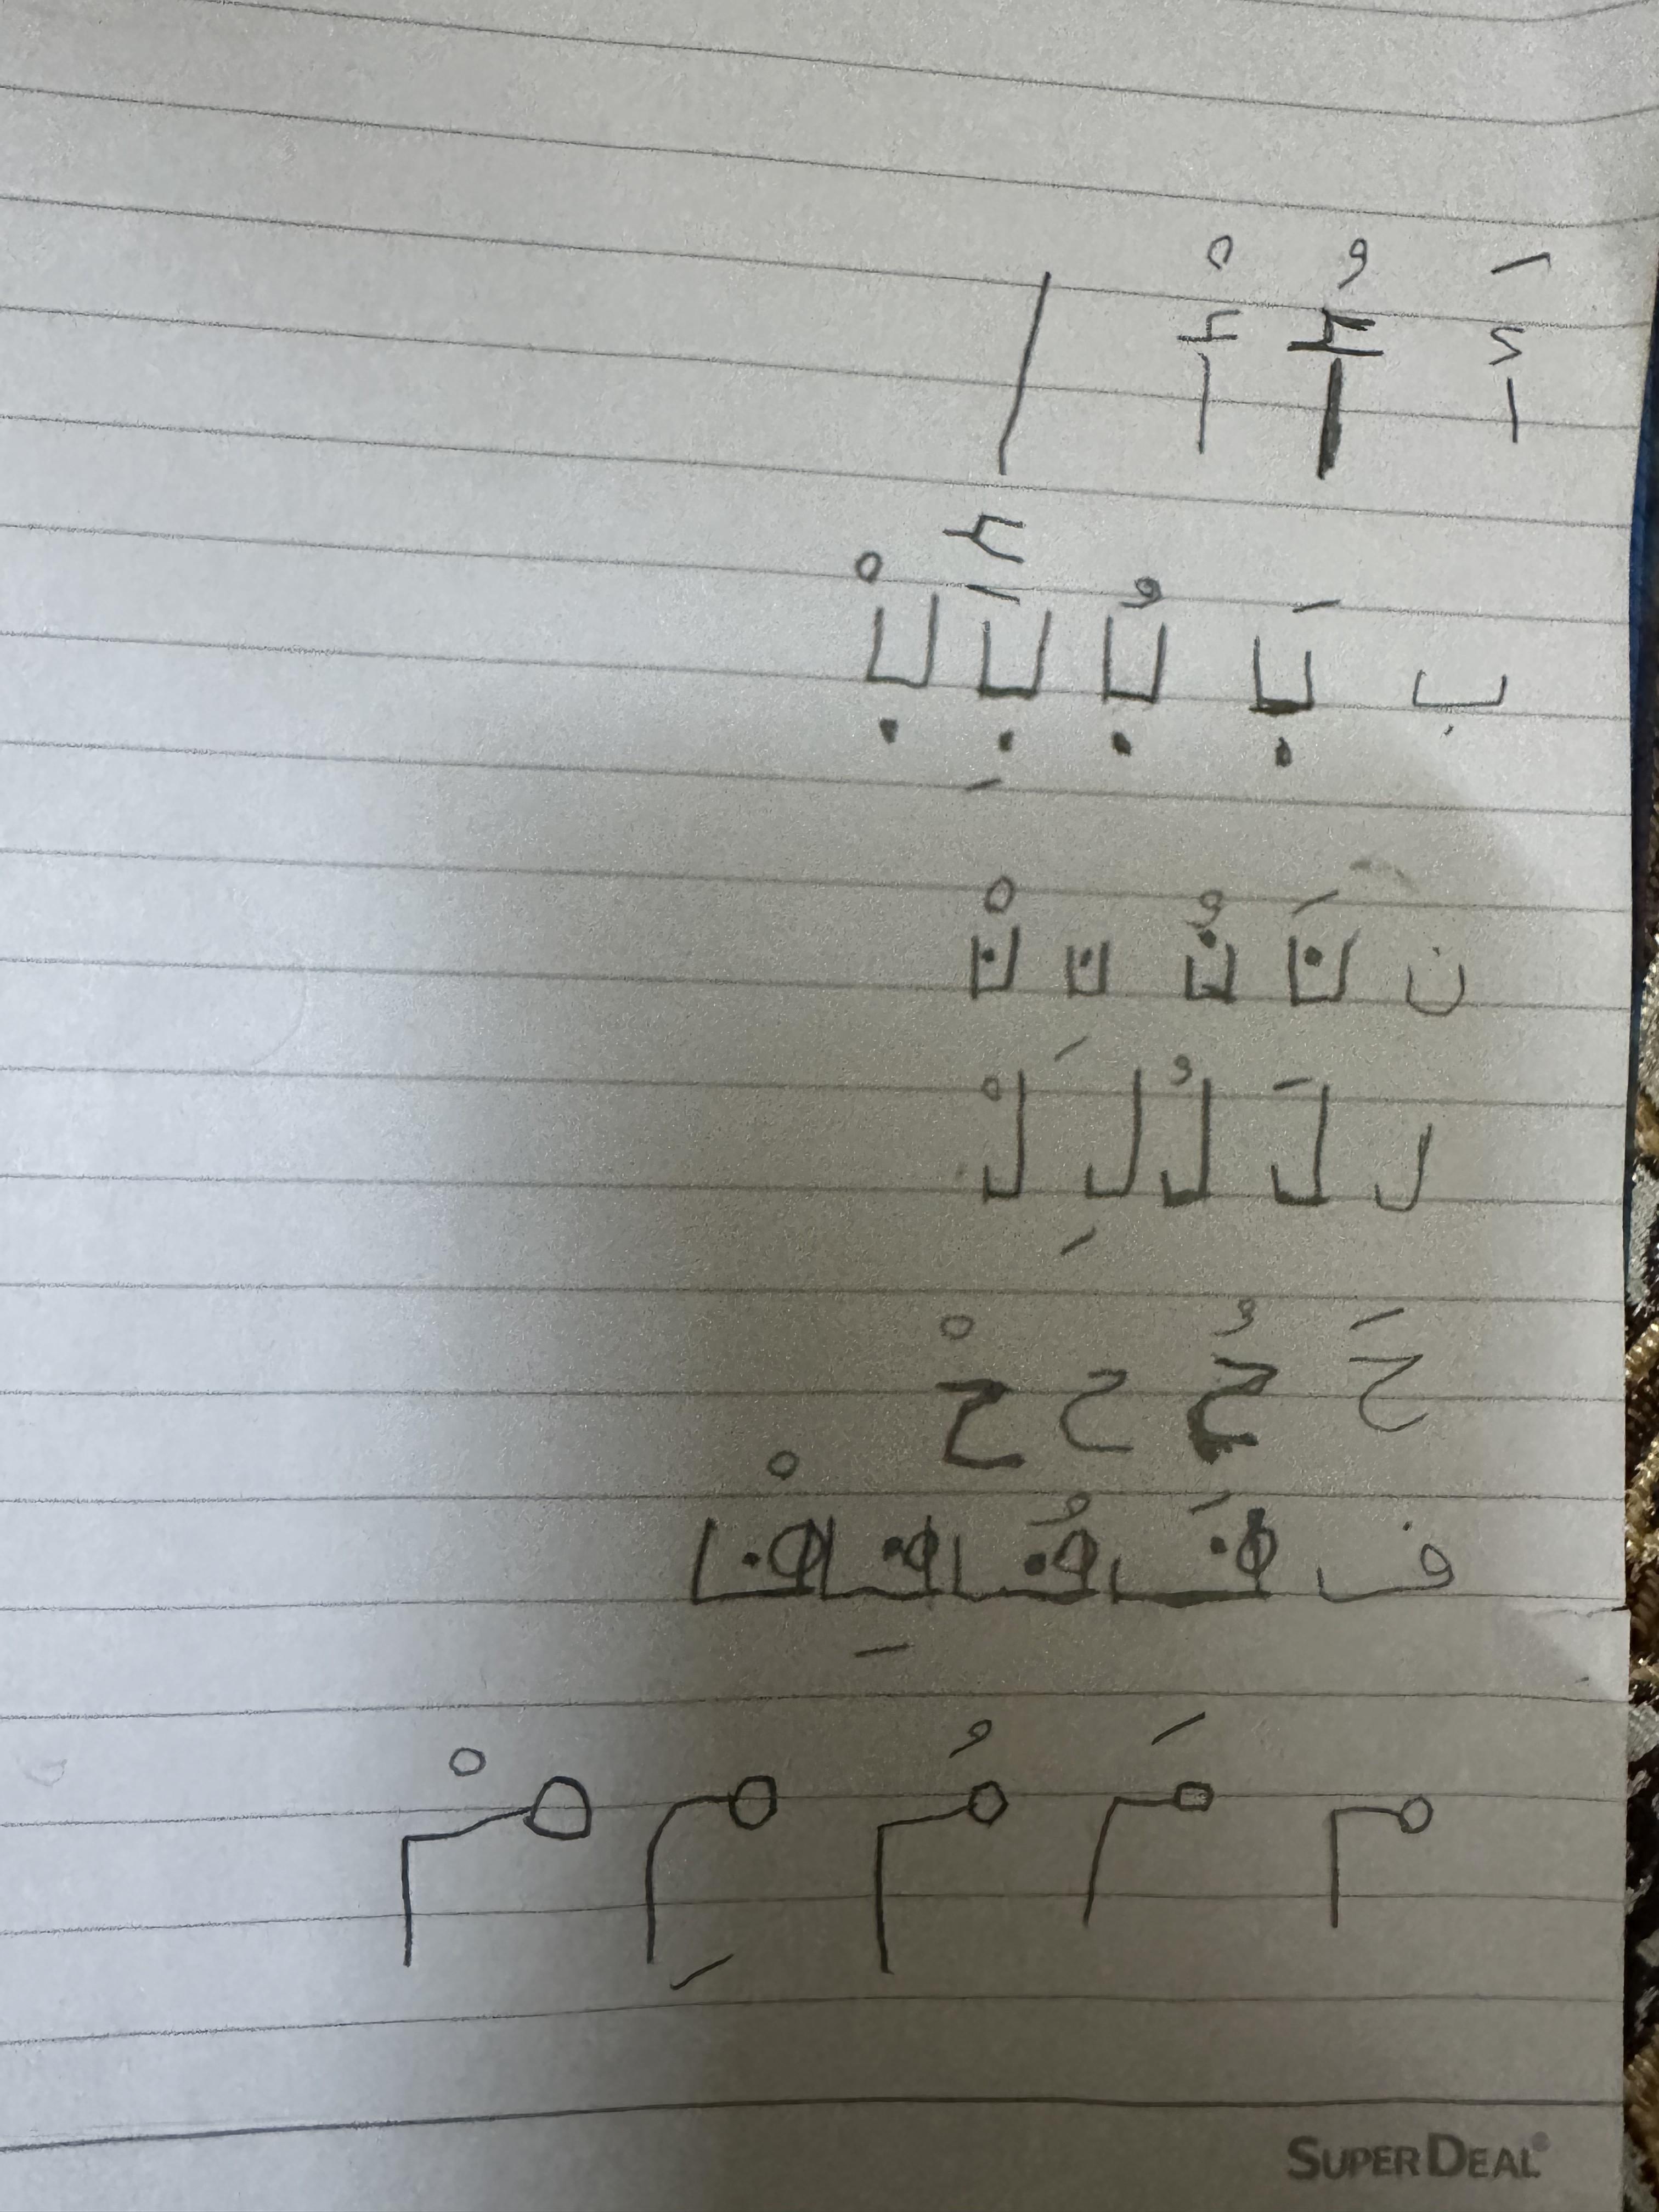 أَ أُ أْ إِ
ب بَ بُ بِ بْ
ن نَ نُ نِ نْ
ل لَ لُ لِ لْ
حَ حُ ح حْ
ف فَ فُ فِ فْ
م مَ مُ مِ مْ
SUPERDEAL